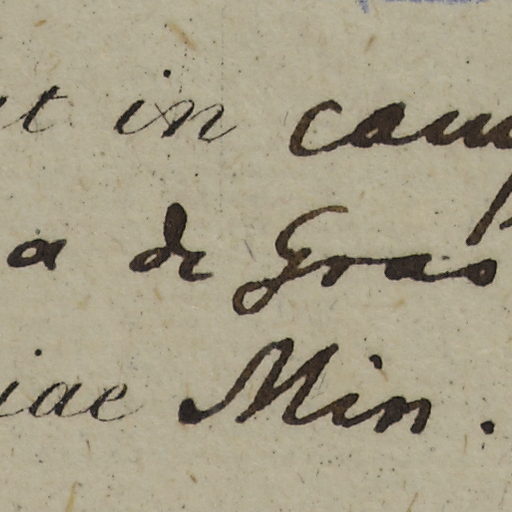 t in camp
a de Gras
iae Min.